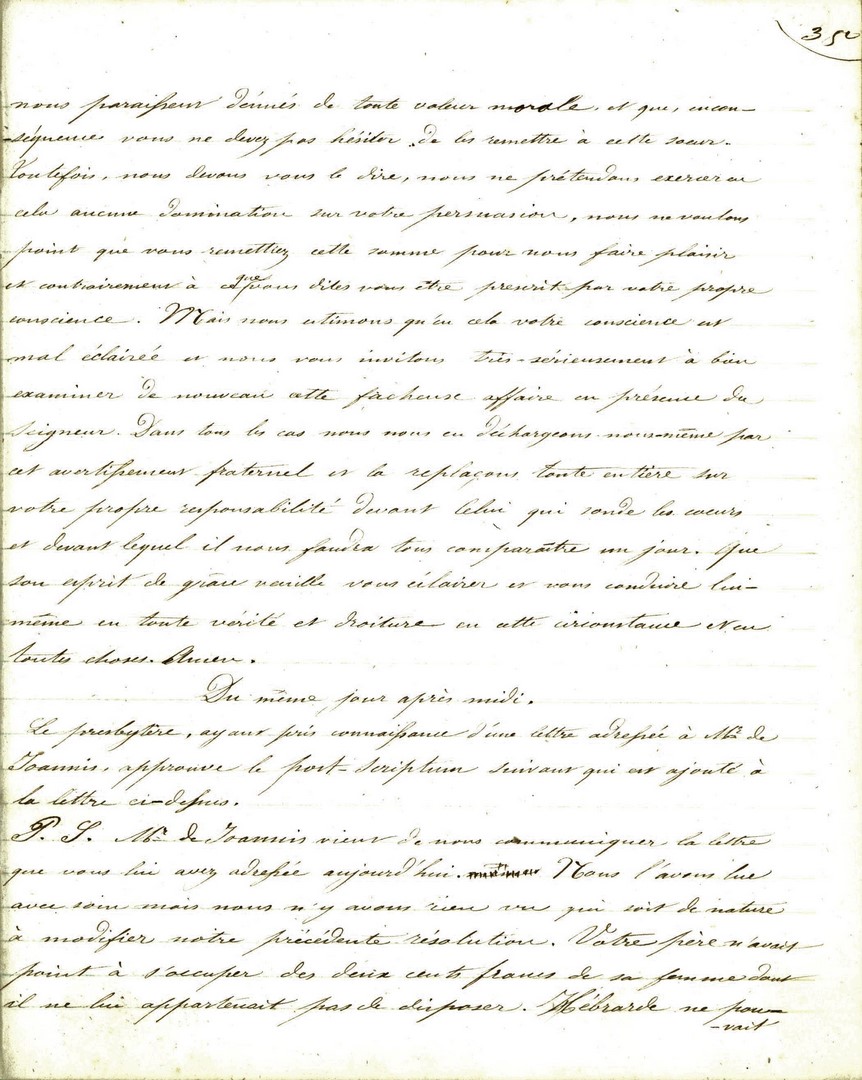 352
nous paraissent dénués de toute valeur morale, et que, incon-
-séquence vous ne devez pas hésiter de les remettre à cette soeur.
Toutefois, nous devons vous le dire, nous ne prétendons exercer en
cela aucune domination sur votre persuasion, nous ne voulons
point que vous remettiez cette somme pour nous faire plaisir
et contrairement à ce que vous dites vous être prescrit par votre propre
conscience. Mais nous estimons qu'en cela votre conscience est
mal éclairée et nous vous invitons très-sérieusement à bien
examiner de nouveau cette facheuse affaire en présence du
Seigneur. Dans tous les cas nous nous en déchargeons nous-même par
cet avertissement fraternel et la replaçons toute entière sur
votre propre responsabilité devant Celui qui sonde les coeurs
et devant lequel il nous faudra tous comparaître un jour. Que
son esprit de grâce veuille vous éclairer et vous conduire lui-
même en toute vérité et droiture en cette circonstance et en
toutes choses. Amen.
Du même jour après midi.
Le presbytère, ayant pris connaissance d'une lettre adressée à Mr. de
Joannis, approuve le post-scriptum suivant qui est ajouté à
la lettre ci-dessus.
P. S. Mr. de Joannis vient de nous communiquer la lettre
que vous lui avez adressée aujourd'hui. Nous l'avons lue
avec soin mais nous n'y avons rien vu qui soit de nature
à modifier notre précédente résolution. Votre père n'avait
point à s'occuper des deux cents francs de sa femme dont
il ne lui appartenait pas de disposer. Hébrarde ne pou-
-vait